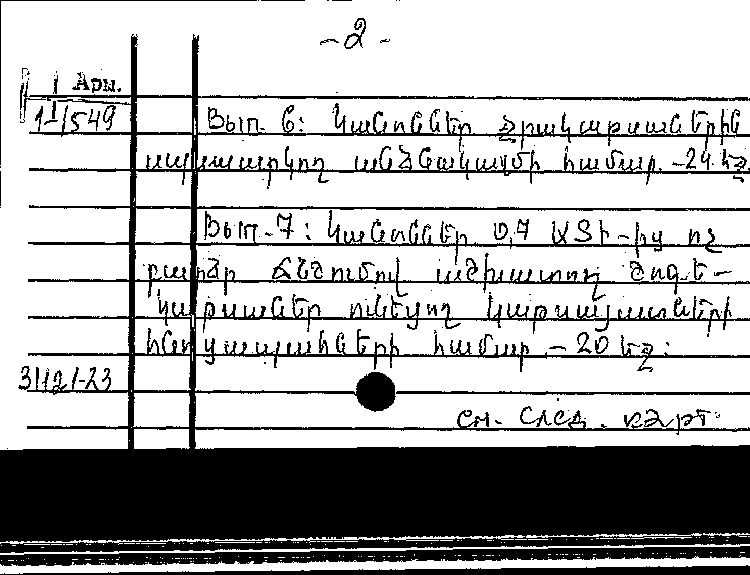 -2-
Арм.
1I/549
Вып. 6: Կանոններ շրակարաններին
սպասարկող անձնակազմի համար. -24 եջ.
Вып.-7: Կանոններ 0,7 ԱՏԻ-ից ոչ
բարձր ճնշումով աշխատող շոգե-
կաթսաներ ունեցող կաթսայատների
հնոցապանների համար. - 20 եջ:
31121-23
см. след. карт.